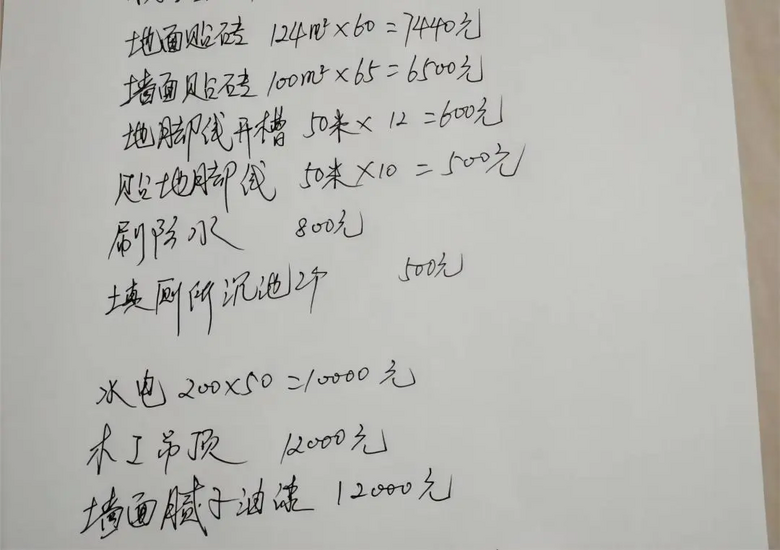 地面贴砖 124m²×60=7440元
墙面贴砖 100m²×65=6500元
地脚线开槽 50米×12=600元
贴地脚线 50米×10=500元
刷防水 800元
填厕所沉池2个 500元
水电 200×50=10000元
木工吊顶 12000元
墙面腻子油漆 12000元